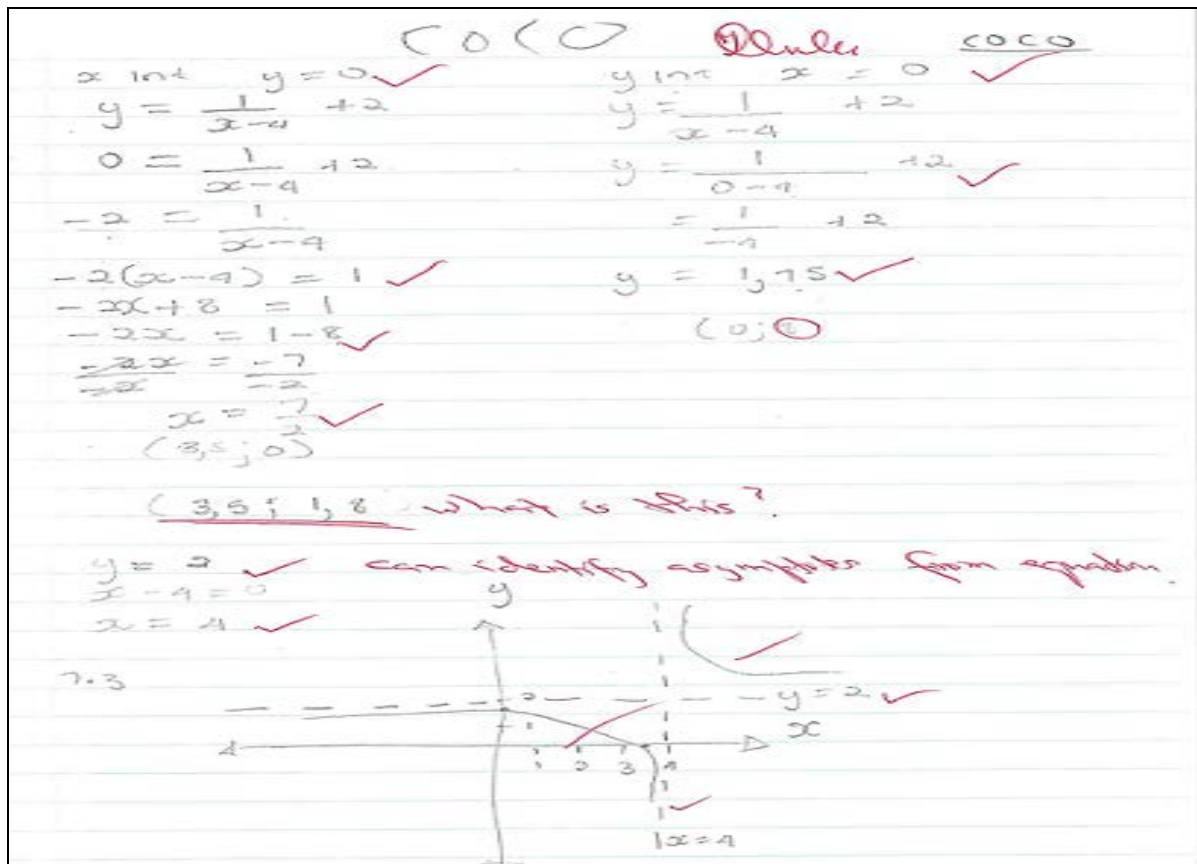 COCO COCO
x int y = 0 ✓
y = 1/(x-4) + 2
0 = 1/(x-4) + 2
-2 = 1/(x-4)
-2(x-4) = 1 ✓
-2x + 8 = 1
-2x = 1 - 8 ✓
-2x/-2 = -7/-2
x = 7/2 ✓
(3,5 ; 0)
y int x = 0 ✓
y = 1/(x-4) + 2
y = 1/(0-4) + 2 ✓
= 1/-4 + 2
y = 1,75 ✓
(0;
(3,5 ; 1,8 what is this?
y = 2 ✓ can identify asymptotes from equation.
x - 4 = 0
x = 4 ✓
7.3
y
2
1
y = 2 ✓
x
1 2 3 4
x = 4